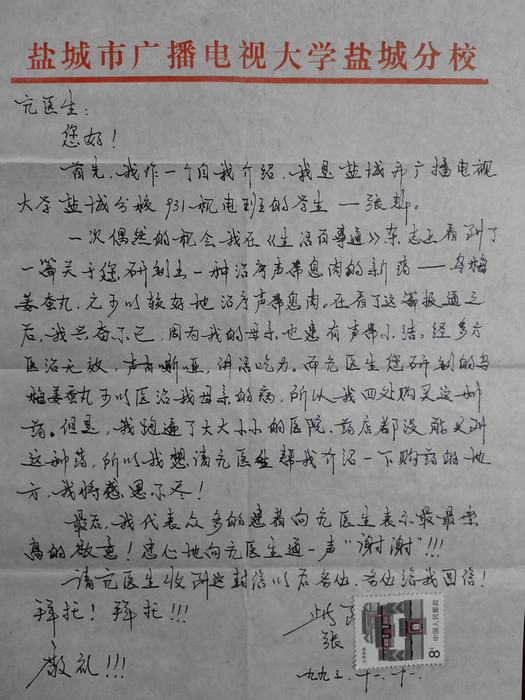 盐城市广播电视大学盐城分校
亢医生:
您好!
首先,我作一个自我介绍,我是盐城市广播电视
大学盐城分校931机电班的学生—张
一次偶然的机会我在《生活百事通》杂志上看到了
一篇关于您研制出一种治疗声带息肉的新药——乌梅
姜蚕丸,它可以较好地治疗声带息肉。在看了这篇报道之
后,我兴奋不已,因为我的母亲也患有声带小结。经多方
医治无效,声音嘶哑,讲话吃力。而亢医生您研制的乌
梅姜蚕丸可以医治我母亲的病,所以我四处购买这种
药。但是,我跑遍了大大小小的医院、药店都没能买到
这种药,所以我想请亢医生帮我介绍一下购药的地
方,我将感恩不尽!
最后,我代表众多的患者向亢医生表示最最崇
高的敬意!衷心地向亢医生道一声“谢谢”!!!
请亢医生收到这封信以后务必,务必给我回信!
拜托!拜托!!! 此致
张
敬礼!!! 一九九三.十一.十一.
中国人民邮政
8分